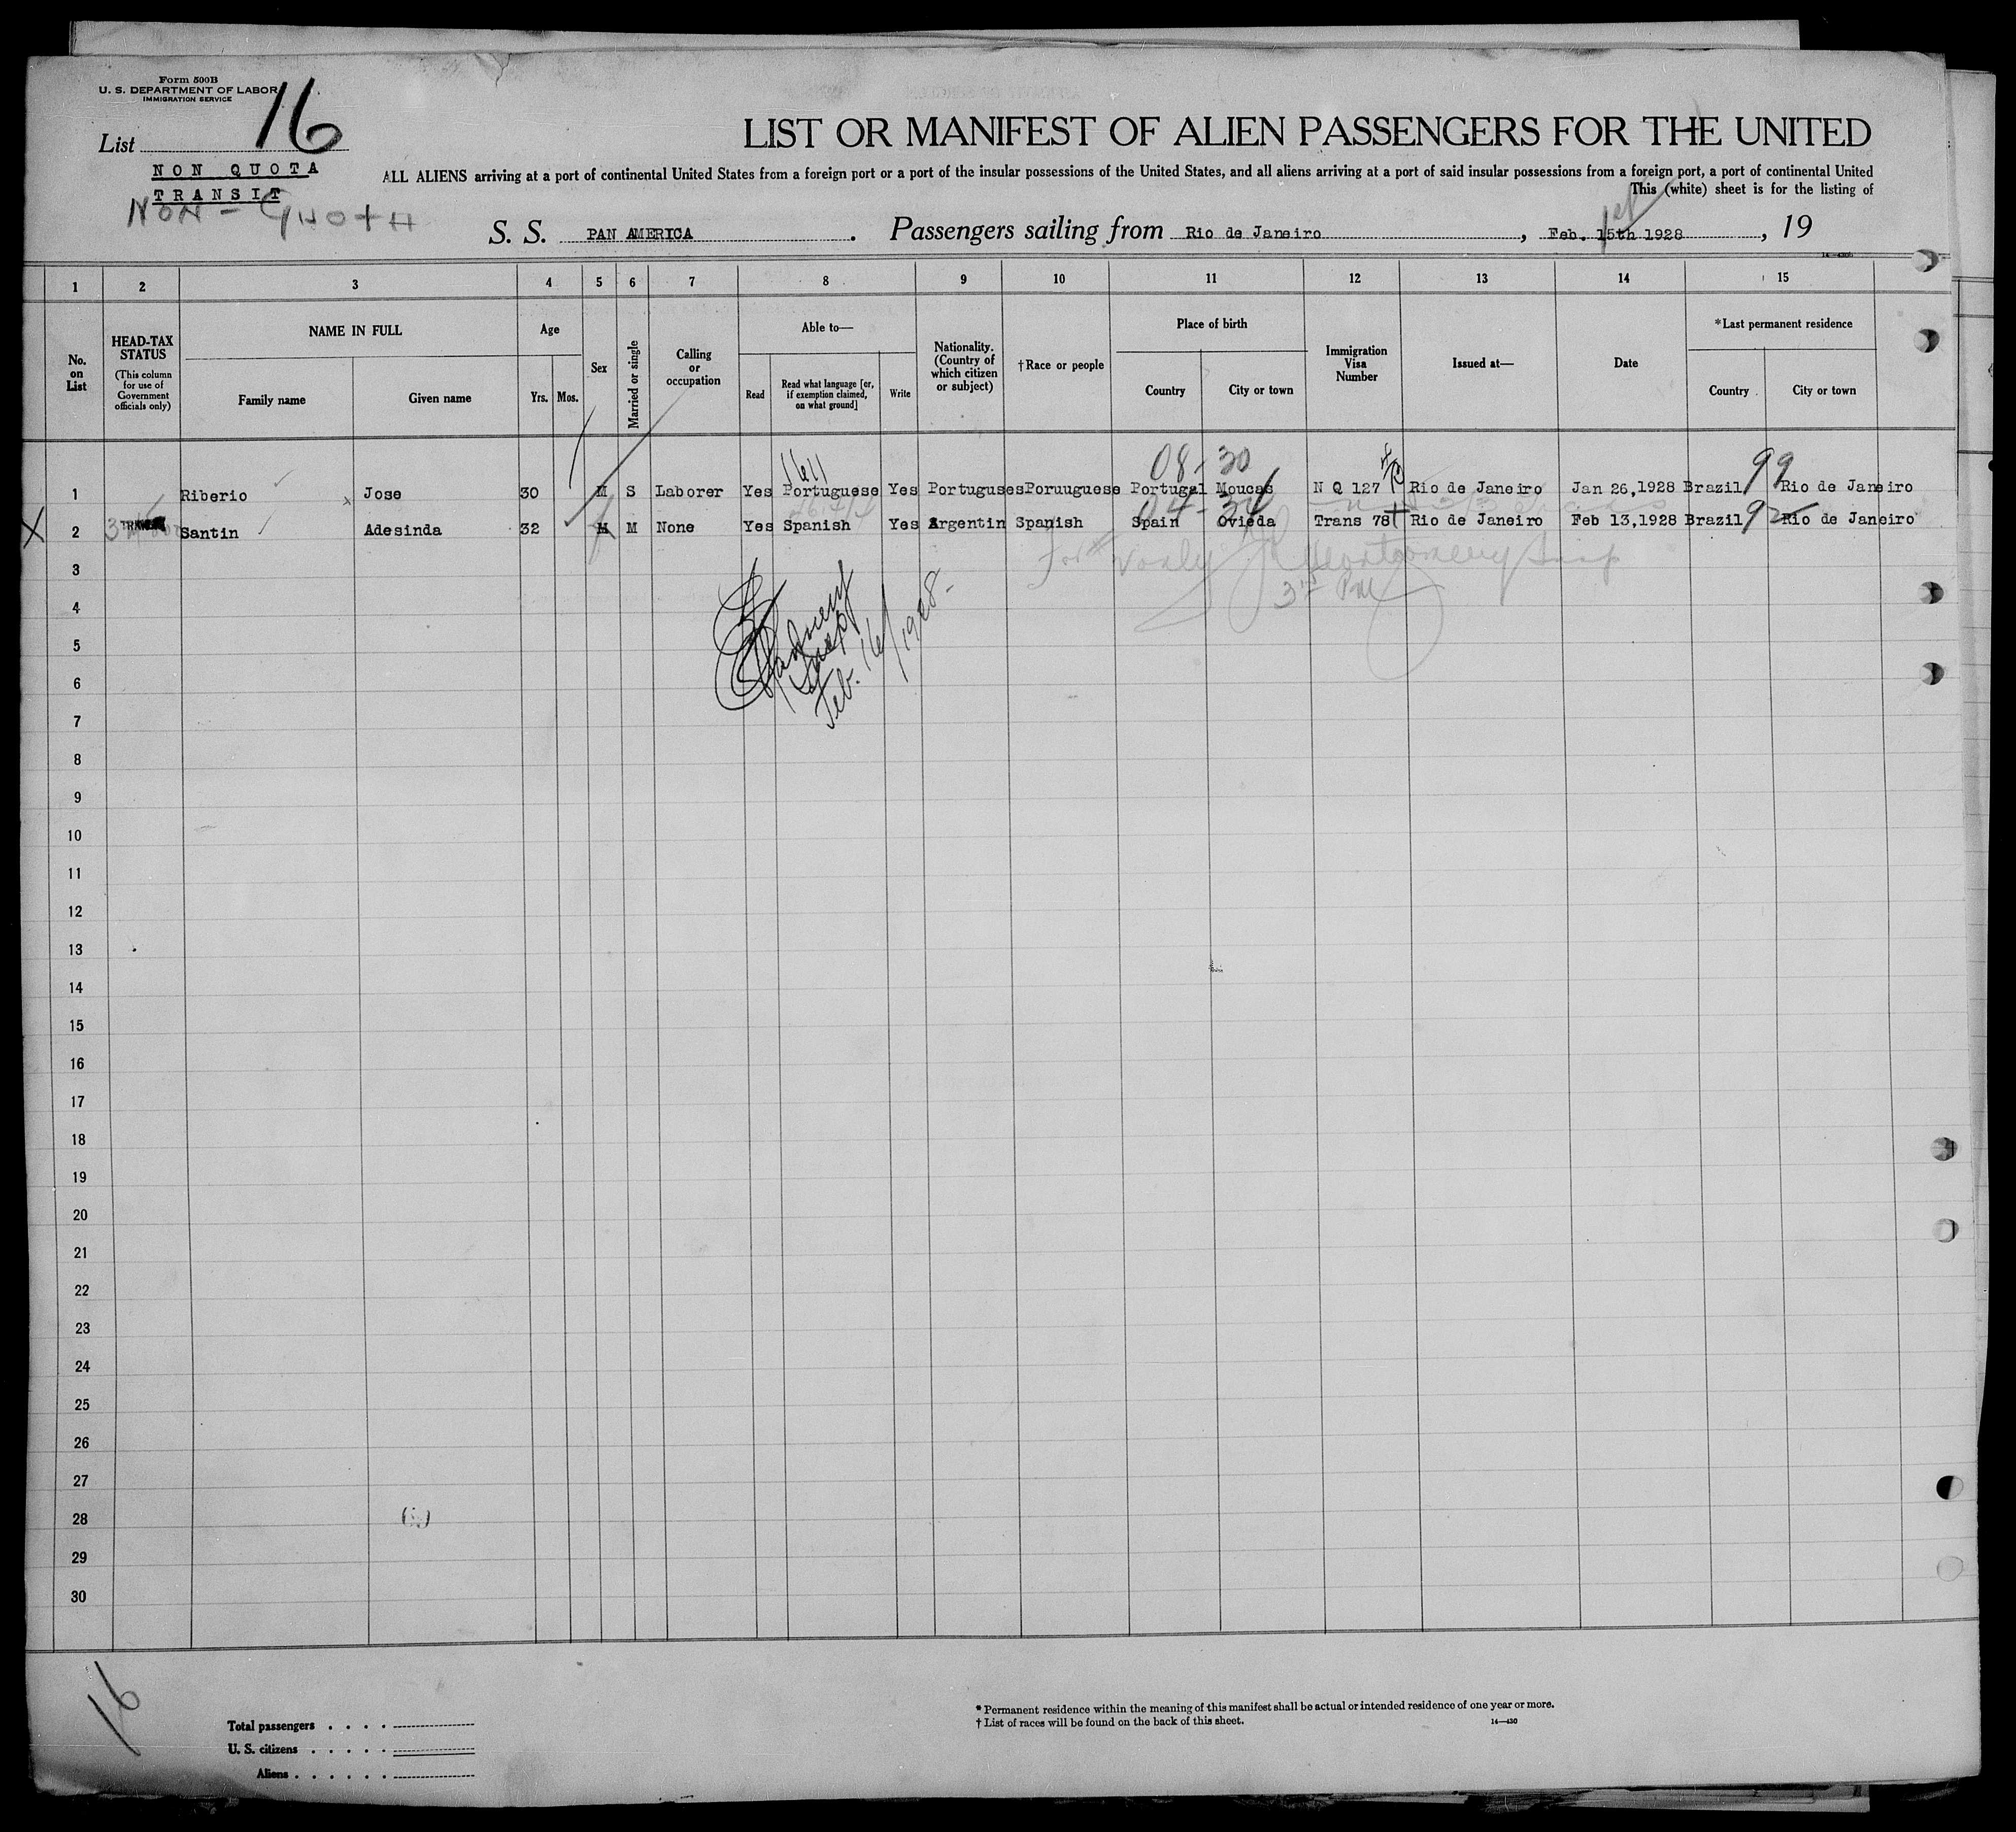 Form 500B
U. S. DEPARTMENT OF LABOR
IMMIGRATION SERVICE
List 16
NON QUOTA
TRANSIT
NON - QUOTA
LIST OR MANIFEST OF ALIEN PASSENGERS FOR THE UNITED
ALL ALIENS arriving at a port of continental United States from a foreign port or a port of the insular possessions of the United States, and all aliens arriving at a port of said insular possessions from a foreign port, a port of continental United
This (white) sheet is for the listing of
S. S. PAN AMERICA. Passengers sailing from Rio de Janeiro, Feb. 15th 1928, 19
1 2 3 4 5 6 7 8 9 10 11 12 13 14 15
No. on List
HEAD-TAX STATUS
(This column for use of Government officials only)
NAME IN FULL
Family name Given name
Age
Yrs. Mos.
Sex
Married or single
Calling or occupation
Able to—
Read
Read what language [or, if exemption claimed, on what ground]
Write
Nationality. (Country of which citizen or subject)
†Race or people
Place of birth
Country City or town
Immigration Visa Number
Issued at—
Date
*Last permanent residence
Country City or town
08-30 99
1 Riberio Jose 30 M S Laborer Yes Portuguese Yes Portuguses Poruuguese Portugal Moucas N Q 127 Rio de Janeiro Jan 26,1928 Brazil Rio de Janeiro
X 2 Santin Adesinda 32 M M None Yes Spanish Yes Argentin Spanish Spain Ovieda Trans 78 Rio de Janeiro Feb 13,1928 Brazil 92 Rio de Janeiro
3
4
5
Insp
Feb. 16/1928-
6
7
8
9
10
11
12
13
14
15
16
17
18
19
20
21
22
23
24
25
26
27
28
29
30
16
Total passengers
U. S. citizens
Aliens
* Permanent residence within the meaning of this manifest shall be actual or intended residence of one year or more.
† List of races will be found on the back of this sheet.
14—430